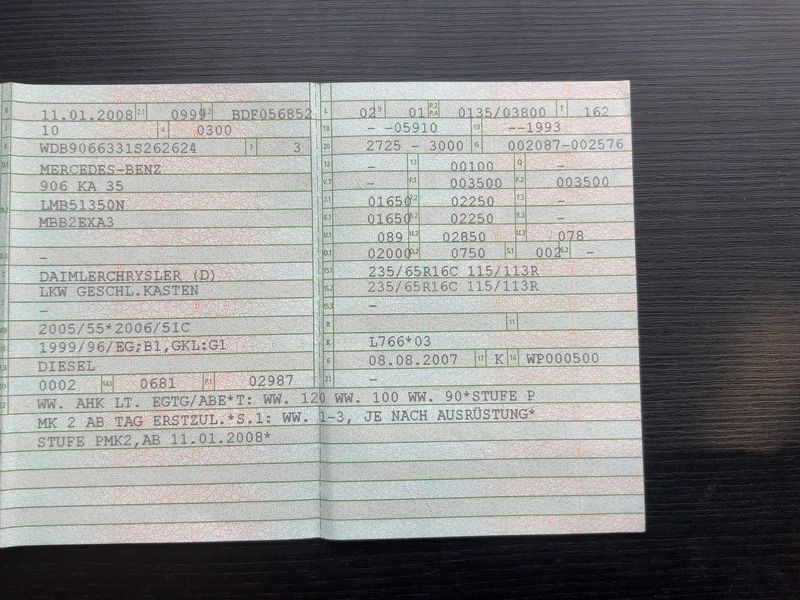 B 11.01.2008 2.1 0999 2.2 BDF056852
J 10 4 0300
E WDB9066331S262624 3 3
D.1 MERCEDES-BENZ
906 KA 35
D.2 LMB51350N
MBB2EXA3
D.3 -
2 DAIMLERCHRYSLER (D)
5 LKW GESCHL.KASTEN
-
V.9 2005/55*2006/51C
14 1999/96/EG;B1,GKL:G1
P.3 DIESEL
0002 14.1 0681 P.1 02987
L 02 9 01 P.2 P.4 0135/03800 T 162
18 - -05910 19 --1993
20 2725 - 3000 G 002087-002576
12 - 13 00100 Q -
V.7 - F.1 003500 F.2 003500
7.1 01650 7.2 02250 7.3 -
8.1 01650 8.2 02250 8.3 -
U.1 089 U.2 02850 U.3 078
O.1 02000 O.2 0750 S.1 002 S.2 -
15.1 235/65R16C 115/113R
15.2 235/65R16C 115/113R
15.3 -
R 11
K L766*03
6 08.08.2007 17 K 16 WP000500
21 -
22 WW. AHK LT. EGTG/ABE*T: WW. 120 WW. 100 WW. 90*STUFE P
MK 2 AB TAG ERSTZUL.*S.1: WW. 1-3, JE NACH AUSRÜSTUNG*
STUFE PMK2,AB 11.01.2008*